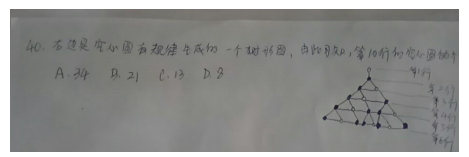 40. 右边是空心圆有规律生成的一个树形图,由此可知,第10行的空心圆的个
A.34 B.21 C.13 D.8
第1行
第2行
第3行
第4行
第5行
第6行